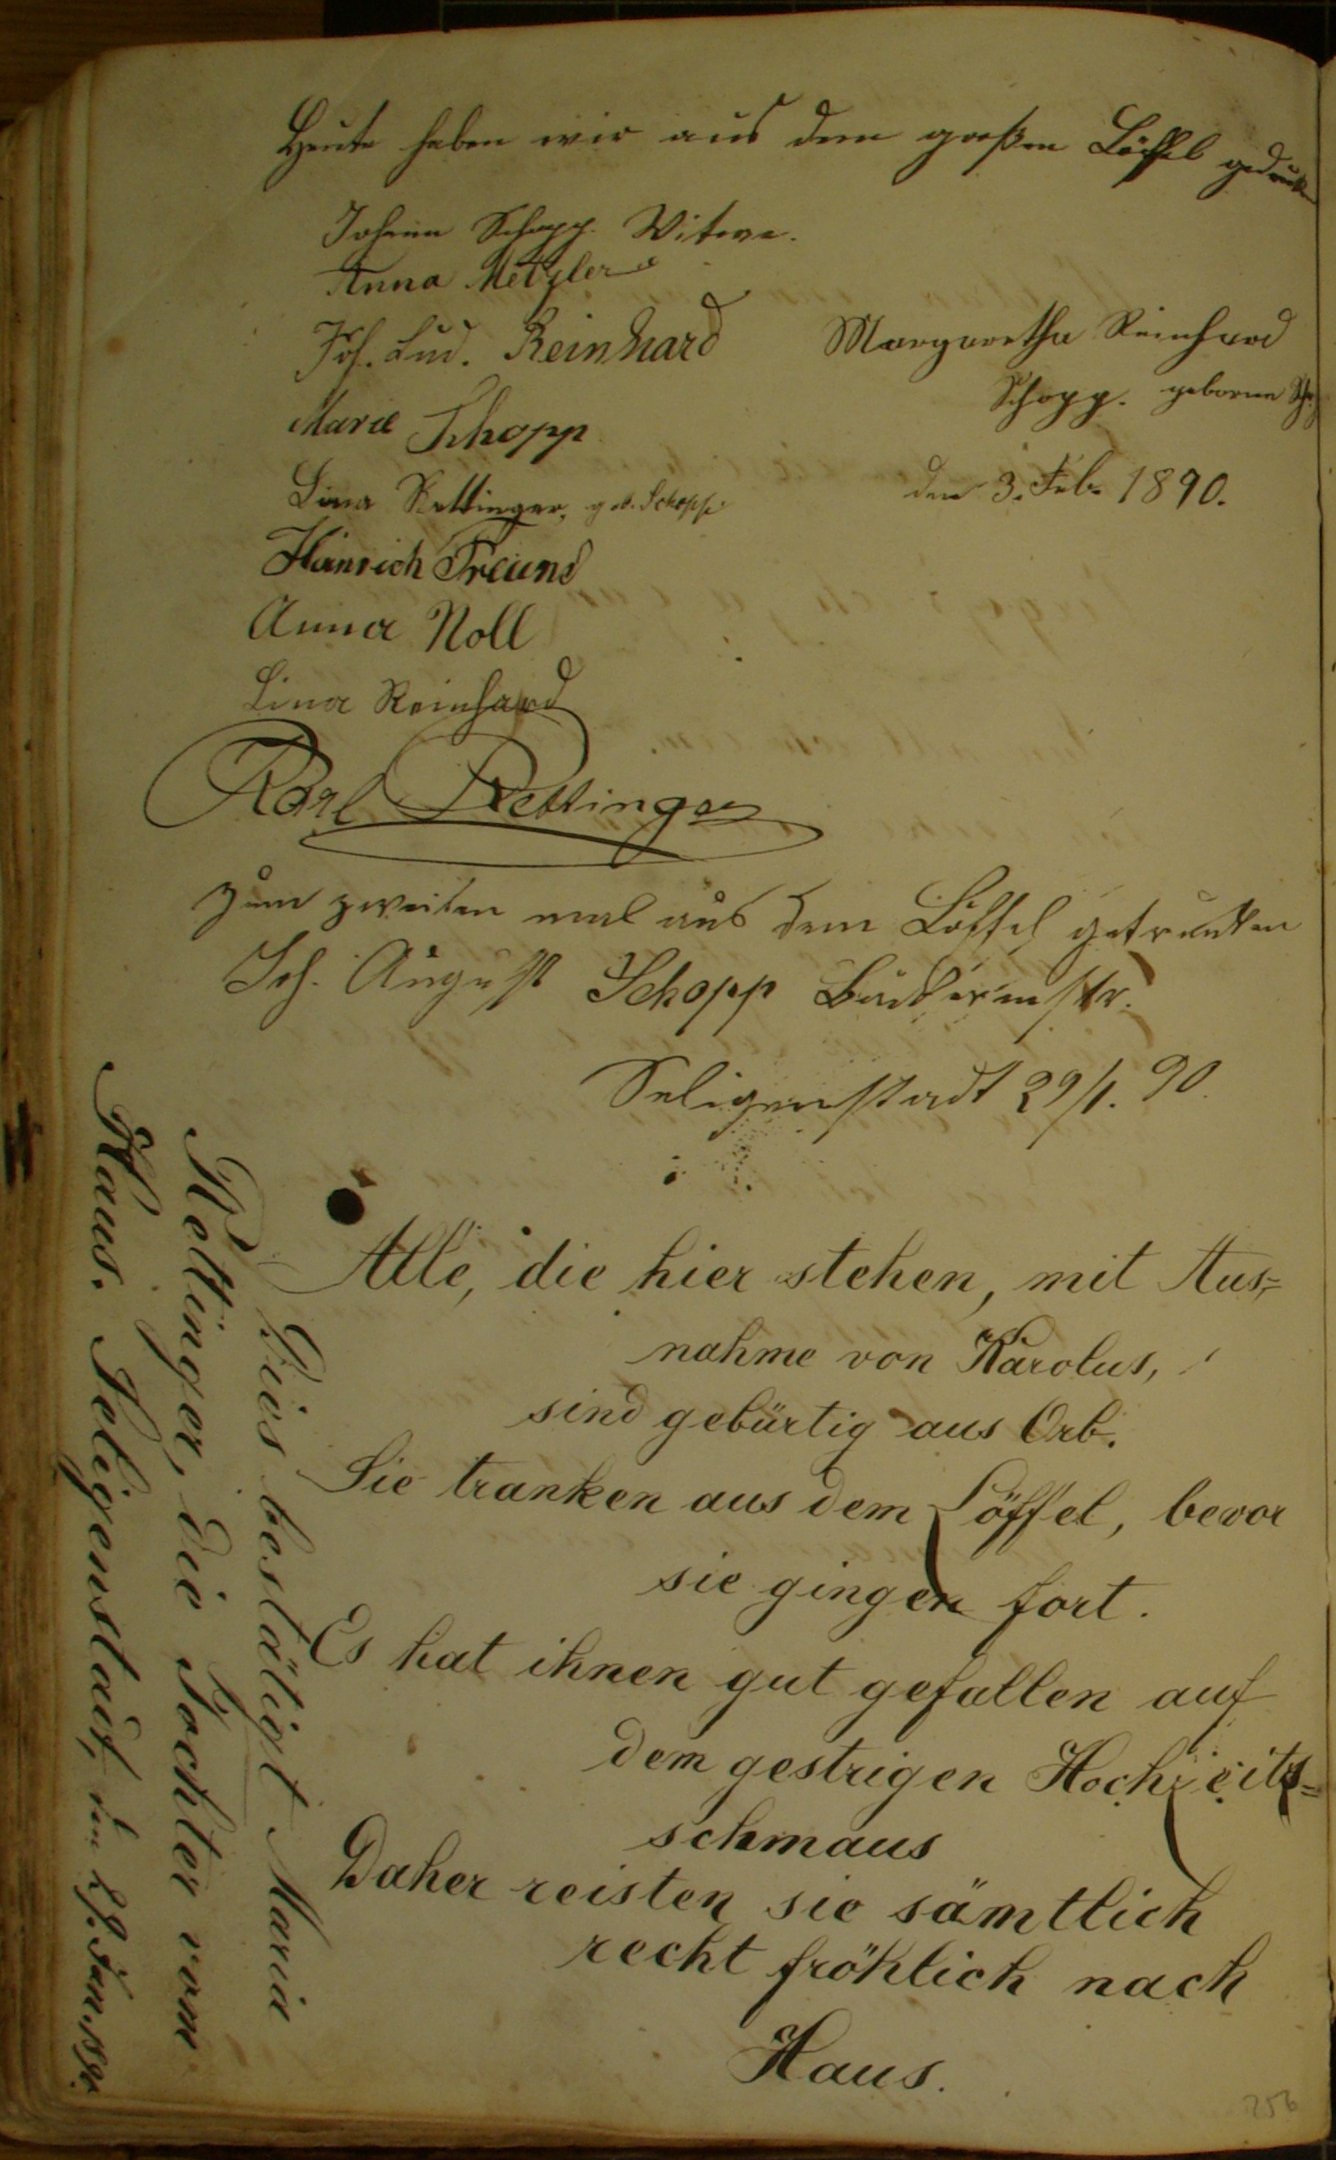 Heute haben wir aus dem großen Löffel
Johann Schopp. Witwe.
Anna Metzler
Joh. Lud. Reinhard
Margaretha Reinhard
Schopp. geborene
Marie Schopp
Lina Rettinger, geb. Schopp.
den 3. Feb. 1890.
Heinrich Freund
Anna Noll
Lina Reinhard
Karl Rettinger
Zum zweiten mal aus dem Löffel getrunken
Joh. August Schopp Bäckermstr.
Seligenstadt 29/1. 90.
Alle, die hier stehen, mit Aus-
nahme von Karolus,
sind gebürtig aus Orb.
Sie tranken aus dem Löffel, bevor
sie gingen fort.
Es hat ihnen gut gefallen auf
dem gestrigen Hochzeits-
schmaus
Daher reisten sie sämtlich
recht fröhlich nach
Haus.
Dies bestätigt Maria
Rettinger, die Tochter vom
Haus. Seligenstadt, den 29. Jan. 1890.
256